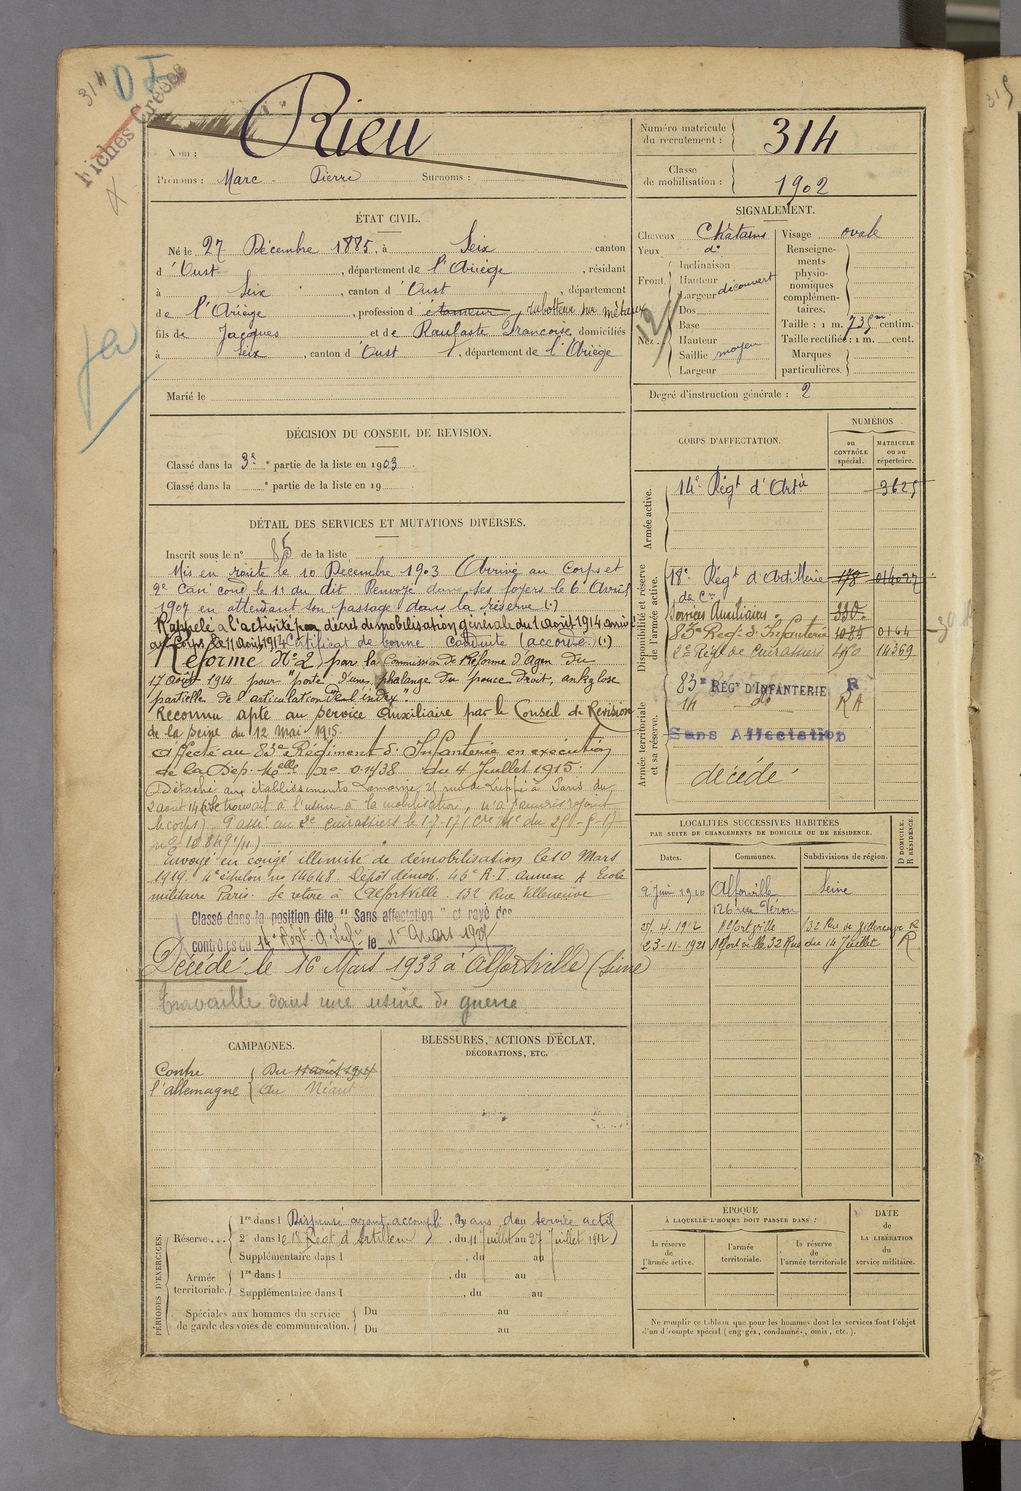 314
Fiches
Nom : Rieu
Prénoms : Marc Pierre Surnoms :
Numéro matricule du recrutement : 314
Classe de mobilisation : 1902
ÉTAT CIVIL.
Né le 27 Décembre 1885, à Seix canton
d'Oust, département de l'Ariège, résidant
à Seix, canton d'Oust, département
de l'Ariège, profession d'étameur, rabotteur sur métaux
fils de Jacques et de Raufaste Françoise, domiciliés
à Seix, canton d'Oust, département de l'Ariège
Marié le
SIGNALEMENT.
Cheveux Châtains
Yeux do
Front Inclinaison
Hauteur
Largeur découvert
Nez Dos
Base
Hauteur
Saillie moyen
Largeur
Visage ovale
Renseigne-
ments
physio-
nomiques
complémen-
taires.
Taille : 1 m. 73 centim.
Taille rectifiée : 1 m. cent.
Marques
particulières.
Degré d'instruction générale : 2
DÉCISION DU CONSEIL DE REVISION.
Classé dans la 3e partie de la liste en 1903
Classé dans la e partie de la liste en 19
DÉTAIL DES SERVICES ET MUTATIONS DIVERSES.
Inscrit sous le n° 85 de la liste
Mis en route le 10 Décembre 1903 Arrivé au Corps et
2e Can. cond. le 11 du dit Renvoyé dans ses foyers le 6 Avril
1907 en attendant son passage dans la réserve (.)
Rappelé à l'activité par décret de mobilisation générale du 1 août 1914 arrivé
au Corps le 11 Août 1914 Certificat de bonne Conduite (accordé) (.)
Réformé N°2 par la Commission de Réforme d'Agen du
17 août 1914 pour "perte d'une phalange du pouce droit, ankylose
partielle de l'articulation de l'index".
Reconnu apte au service Auxiliaire par le Conseil de Révision
de la Seine du 12 Mai 1915.
Affecté au 83e Régiment d'Infanterie en exécution
de la Dép. Melle No 01438 du 4 Juillet 1915.
Détaché aux établissements
2 août 14 (Se trouvait à l'usine à la mobilisation, n'a jamais rejoint
le corps) Passé au 2e Cuirassiers le 1-7-17
Envoyé en congé illimité de démobilisation le 10 Mars
1919. 4e échelon no 14648. Dépôt démob. 46e R.I. annexe A École
militaire Paris. Se retire à Alfortville 132 Rue Villeneuve
Classé dans la position dite "Sans affectation" et rayé des
contrôles du 14e Régt. d'Infie le 1er Mars
Décédé le 16 Mars 1933 à Alfortville (Seine
travaille dans une usine de guerre
CORPS D'AFFECTATION.
NUMÉROS
au CONTRÔLE spécial.
MATRICULE ou au répertoire.
Armée active.
14e Régt d'Artie 3625
Disponibilité et réserve de l'armée active.
18e Régt d'Artillerie 178 014027
Services Auxiliaires
83e Régt d'Infanterie 1085 0164
2e Régt de Cuirassiers 14369
Armée territoriale et sa réserve.
83e RÉGt D'INFANTERIE R
14 do RA
Sans Affectation
décédé
LOCALITÉS SUCCESSIVES HABITÉES
PAR SUITE DE CHANGEMENTS DE DOMICILE OU DE RÉSIDENCE.
Dates. Communes. Subdivisions de région. D DOMICILE. R RÉSIDENCE.
2 Juin 1910 Alforville Seine
126 rue Véron
27.4.1912 Alfortville 132 Rue de Villeneuve R
23-11-1921 Alfortville 32 Rue du 14 Juillet R
CAMPAGNES.
Contre
l'allemagne
Du 11 août 1914
au Néant
BLESSURES, ACTIONS D'ÉCLAT,
DÉCORATIONS, ETC.
PÉRIODES D'EXERCICES.
Réserve... 1re dans l Dispensé ayant accompli ans de service actif
2e dans le 18 Régt d'Artillerie, du 11 Juillet au 27 Juillet 1912
Supplémentaire dans l , du au
Armée territoriale. 1re dans l , du au
Supplémentaire dans l , du au
Spéciales aux hommes du service
de garde des voies de communication.
Du au
Du au
ÉPOQUE
À LAQUELLE L'HOMME DOIT PASSER DANS :
la réserve de l'armée active.
l'armée territoriale.
la réserve de l'armée territoriale
DATE
de
LA LIBÉRATION
du
service militaire.
Ne remplir ce tableau que pour les hommes dont les services font l'objet
d'un décompte spécial (engagés, condamnés, omis, etc.).